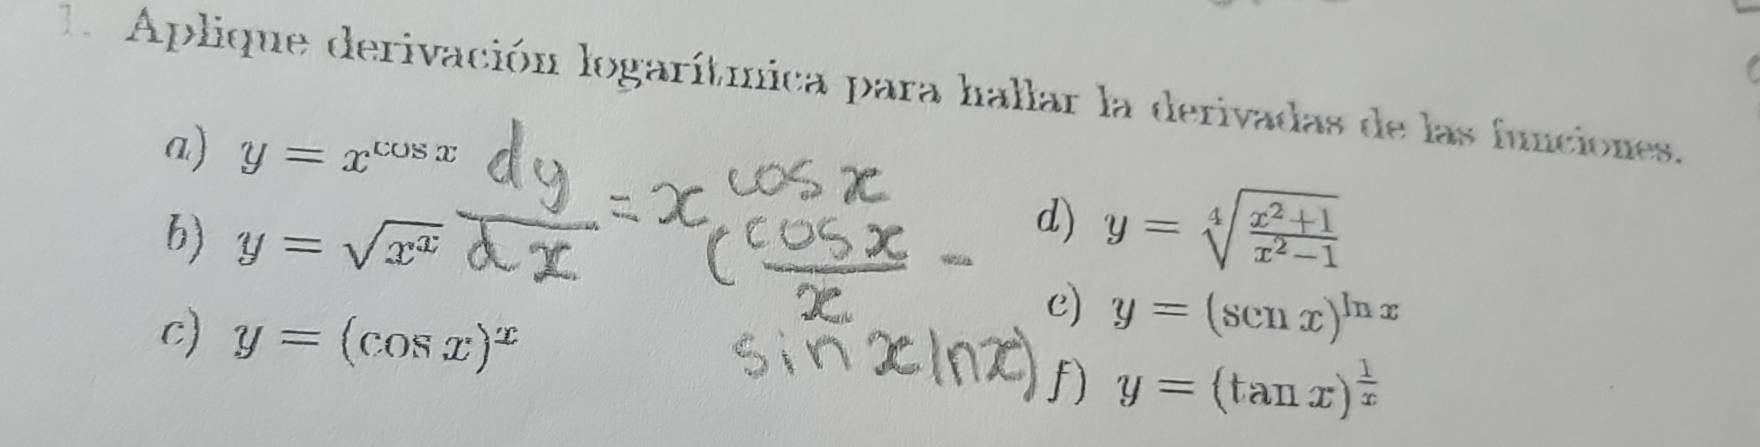 1. Aplique derivación logarítmica para hallar la derivadas de las funciones.
a) y = x^{cos x}
b) y = \sqrt{x^x}
c) y = (cos x)^x
dy/dx = x^{cos x} (cos x / x - sin x ln x)
d) y = \sqrt[4]{\frac{x^2+1}{x^2-1}}
e) y = (sen x)^{ln x}
f) y = (tan x)^{\frac{1}{x}}